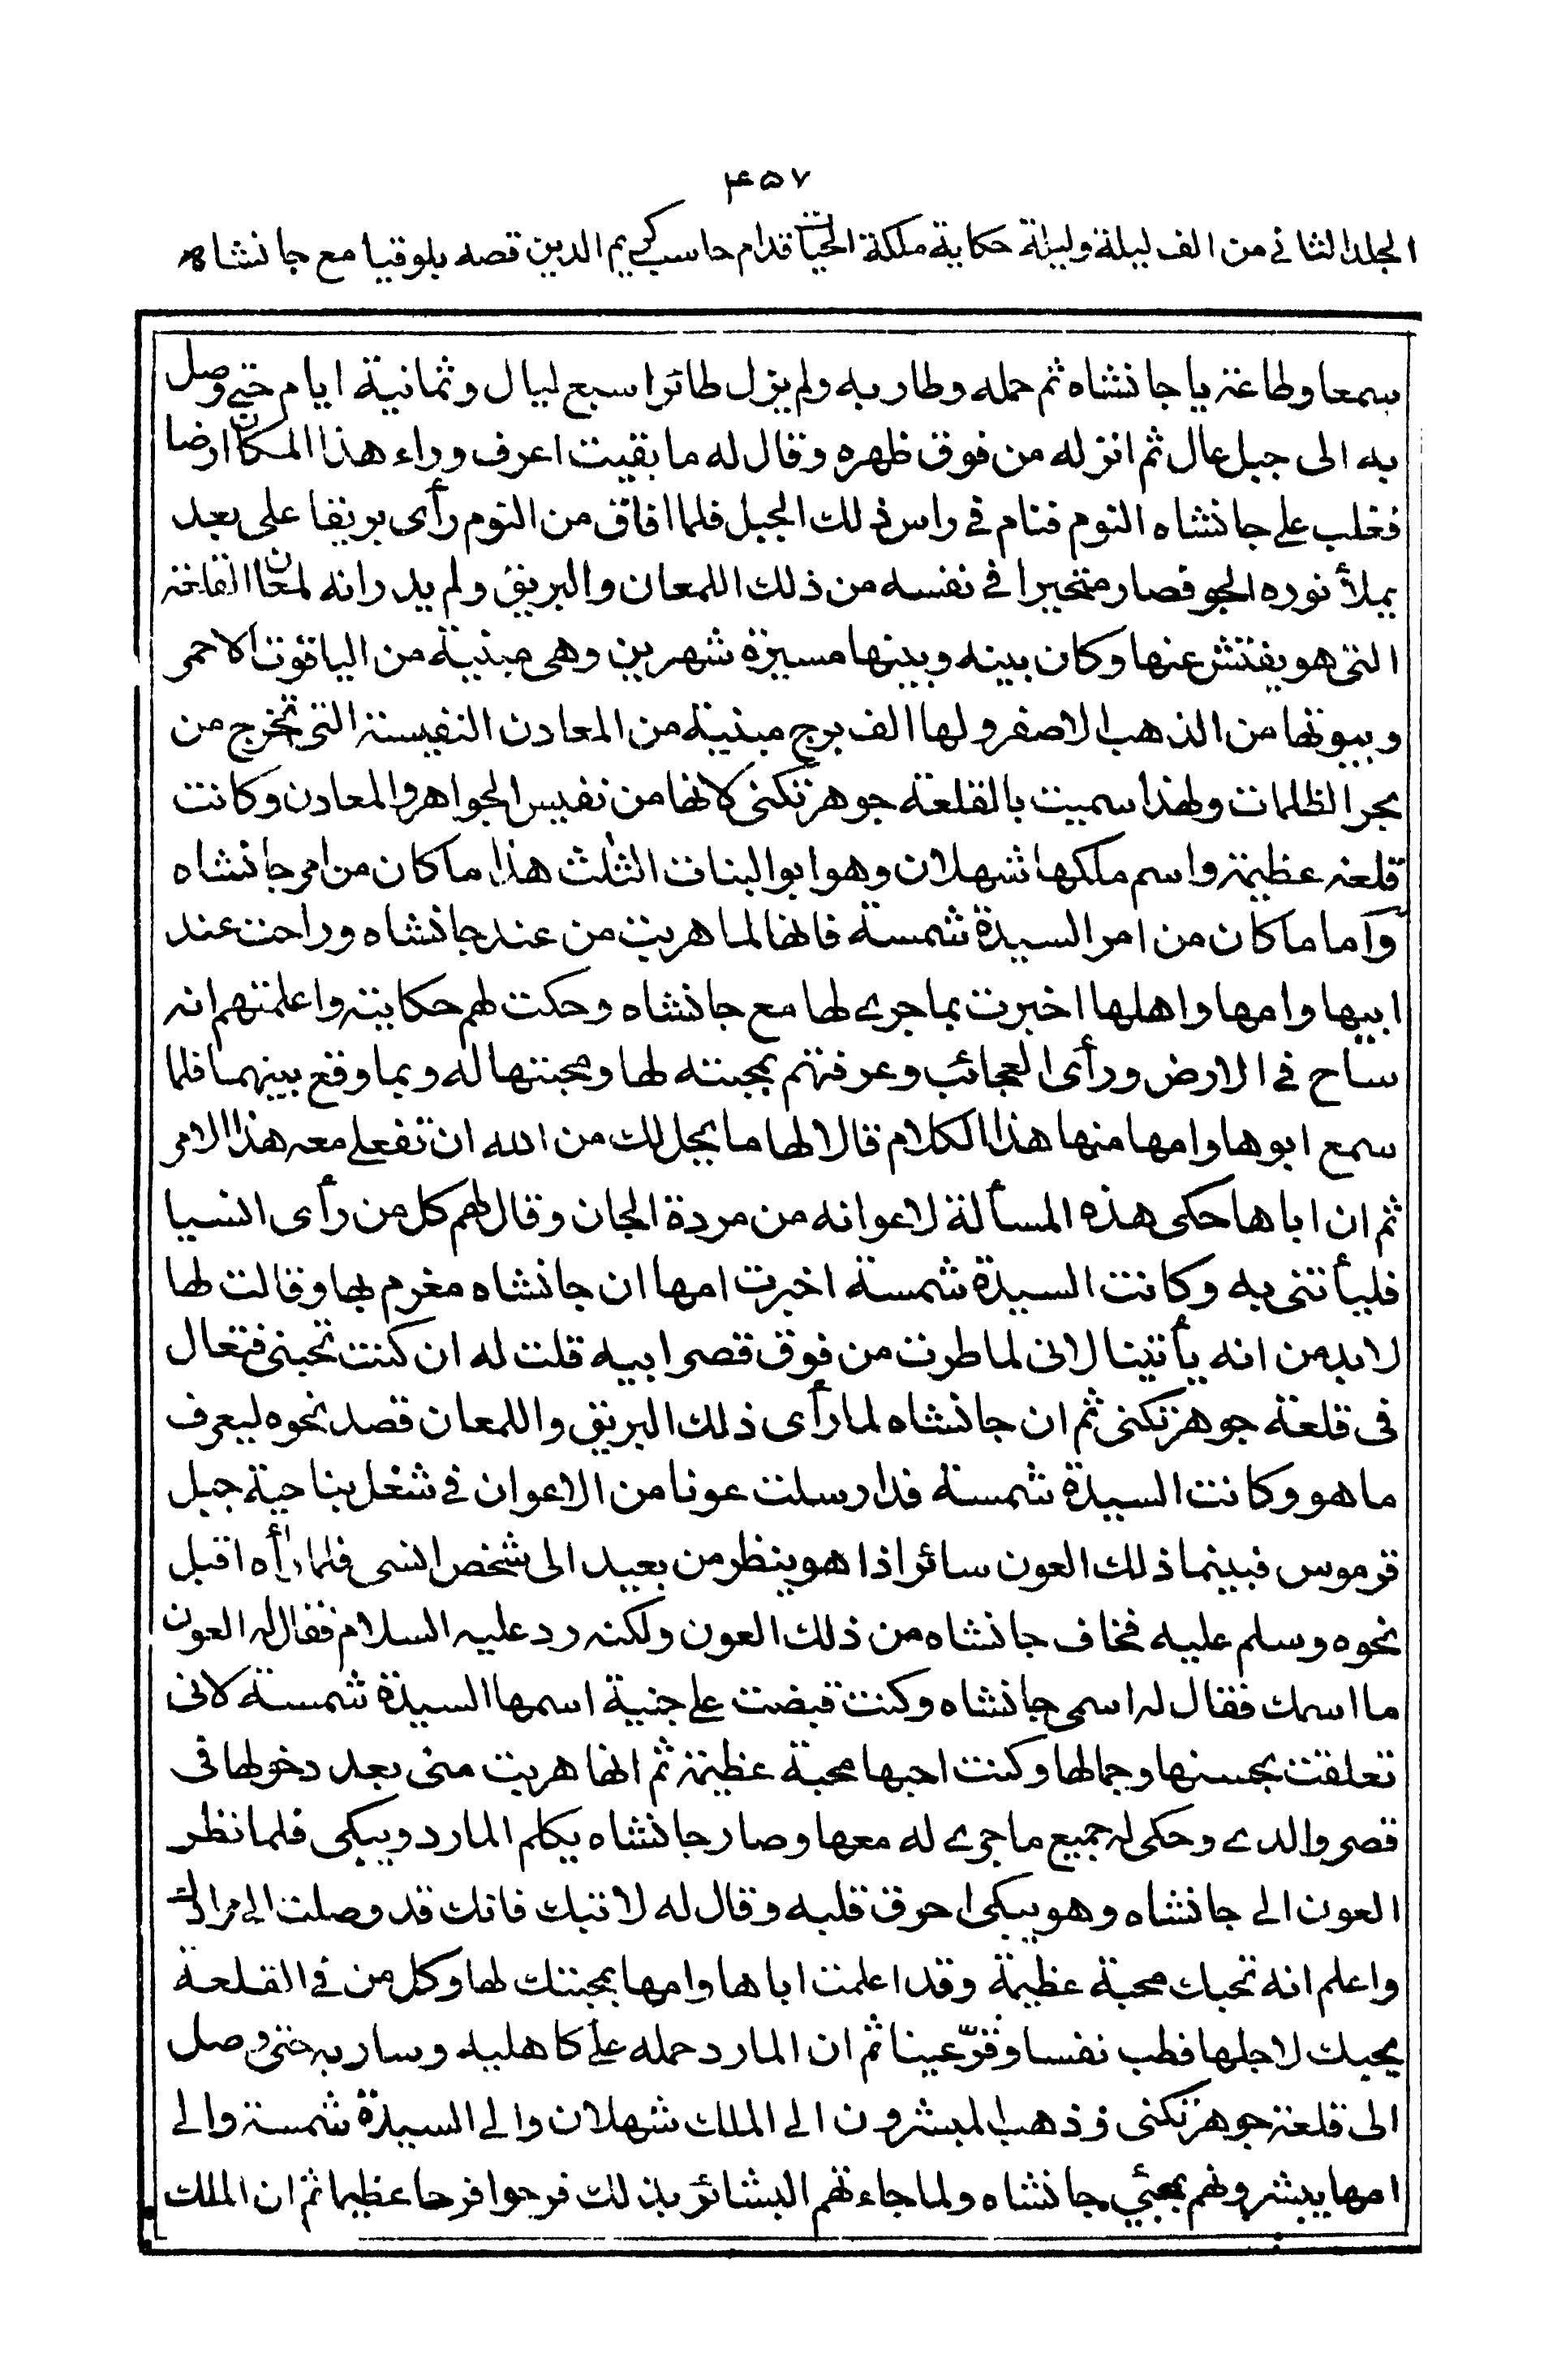 ۴۵۷
الجلد الثانے من الف ليلة وليلة حكاية ملكة الحيات قدام حاسب كريم الدين قصه بلوقيا مع جانشاه
سمعا وطاعة يا جانشاه ثم حمله وطار به ولم يزل طائرا سبع ليال وثمانية ايام حتے وصل
به الى جبل عال ثم انزله من فوق ظهره وقال له ما بقيت اعرف وراء هذا المكان ارضا
فغلب علے جانشاه النوم فنام فے راس ذلك الجبل فلما افاق من النوم رأى بريقا على بعد
يملأ نوره الجو فصار متحيرا فے نفسه من ذلك اللمعان والبريق ولم يدر انه لمعان القلعة
التى هو يفتش عنها وكان بينه وبينها مسيرة شهرين وهى مبنية من الياقوت الاحمر
وبيوتها من الذهب الاصفر ولها الف برج مبنية من المعادن النفيسة التى تخرج من
بحر الظلمات ولهذا سميت بالقلعة جوهر تكنى لانها من نفيس الجواهر والمعادن وكانت
قلعة عظيمة واسم ملكها شهلان وهو ابو البنات الثلث هذا ما كان من امر جانشاه
وآما ما كان من امر السيدة شمسة فانها لما هربت من عند جانشاه وراحت عند
ابيها وامها واهلها اخبرت بما جرے لها مع جانشاه وحكت لهم حكايته واعلمتهم انه
ساح فے الارض ورأى العجائب وعرفتهم بمحبته لها ومحبتها له وبما وقع بينهما فلما
سمع ابوها وامها منها هذا الكلام قالا لها ما يحل لك من الله ان تفعلے معه هذا الامر
ثم ان اباها حكى هذه المسألة لاعوانه من مردة الجان وقال لهم كل من رأى انسيا
فليأتنى به وكانت السيدة شمسة اخبرت امها ان جانشاه مغرم بها وقالت لها
لابد من انه يأتينا لانى لما طرت من فوق قصر ابيه قلت له ان كنت تحبنى فتعال
فى قلعة جوهر تكنى ثم ان جانشاه لما رأى ذلك البريق واللمعان قصد نحوه ليعرف
ما هو وكانت السيدة شمسة قد ارسلت عونا من الاعوان فے شغل بناحية جبل
قرموس فبينما ذلك العون سائر اذا هو ينظر من بعيد الى شخص انسى فلما رأه اقبل
نحوه وسلم عليه فخاف جانشاه من ذلك العون ولكنه رد عليه السلام فقال له العون
ما اسمك فقال له اسمى جانشاه وكنت قبضت علے جنية اسمها السيدة شمسة لانى
تعلقت بحسنها وجمالها وكنت احبها محبة عظيمة ثم انها هربت منى بعد دخولها فى
قصر والدے وحكى له جميع ما جرے له معها وصار جانشاه يكلم المارد ويبكى فلما نظر
العون الے جانشاه وهو يبكى احرق قلبه وقال له لا تبك فانك قد وصلت الے مرادك
واعلم انه تحبك محبة عظيمة وقد اعلمت اباها وامها بمحبتك لها وكل من فے القلعة
يحبك لاجلها فطب نفسا وقرّ عينا ثم ان المارد حمله علے كاهليه وسار به حتى وصل
الى قلعة جوهر تكنى و ذهب المبشرون الے الملك شهلان والے السيدة شمسة والے
امها يبشرونهم بمجئي جانشاه ولما جاءتهم البشائر بذلك فرحوا فرحا عظيما ثم ان الملك